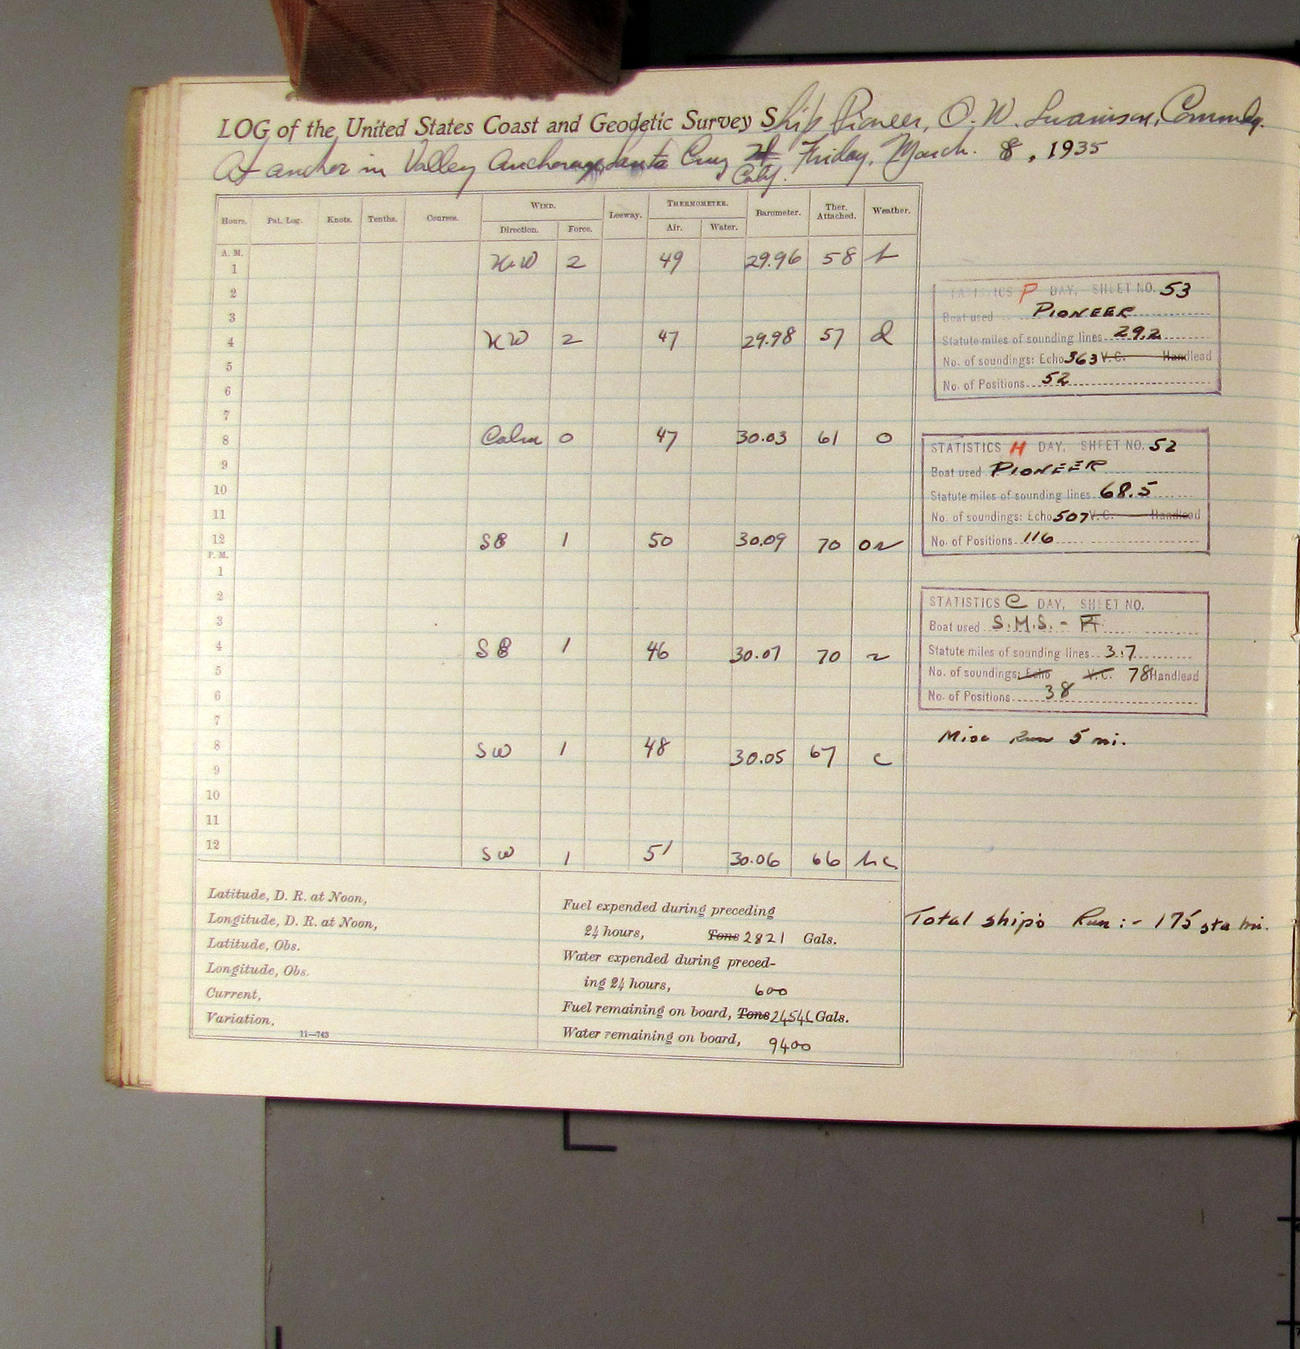 LOG of the United States Coast and Geodetic Survey Ship Pioneer, O. W. Swainson, Commdg.
At anchor in Valley Anchorage, Santa Cruz Id Calif. Friday, March. 8, 1935
Hours. Pat. Log. Knots. Tenths. Courses. WIND. Leeway. THERMOMETER. Barometer. Ther. Attached. Weather.
Direction. Force. Air. Water.
A. M.
1 NW 2 49 29.96 58 b
2
3
4 NW 2 47 29.98 57 d
5
6
7
8 Calm 0 47 30.03 61 o
9
10
11
12 SE 1 50 30.09 70
P. M.
1
2
3
4 SE 1 46 30.07 70
5
6
7
8 SW 1 48 30.05 67 c
9
10
11
12 SW 1 51 30.06 66
Latitude, D. R. at Noon,
Longitude, D. R. at Noon,
Latitude, Obs.
Longitude, Obs.
Current,
Variation,
11—743
Fuel expended during preceding
24 hours, Tons 2821 Gals.
Water expended during preced-
ing 24 hours, 600
Fuel remaining on board, Tons Gals.
Water remaining on board, 9400
STATISTICS P DAY, SHEET NO. 53
Boat used PIONEER
Statute miles of sounding lines 29.2
No. of soundings: Echo 363 V.C. Handlead
No. of Positions 52
STATISTICS H DAY, SHEET NO. 52
Boat used PIONEER
Statute miles of sounding lines 68.5
No. of soundings: Echo 507 V.C. Handlead
No. of Positions 116
STATISTICS C DAY, SHEET NO.
Boat used S.M.S. -
Statute miles of sounding lines 3.7
No. of soundings: Echo V.C. 78 Handlead
No. of Positions 38
Misc Run 5 mi.
Total ship's Run :- 175 sta mi.